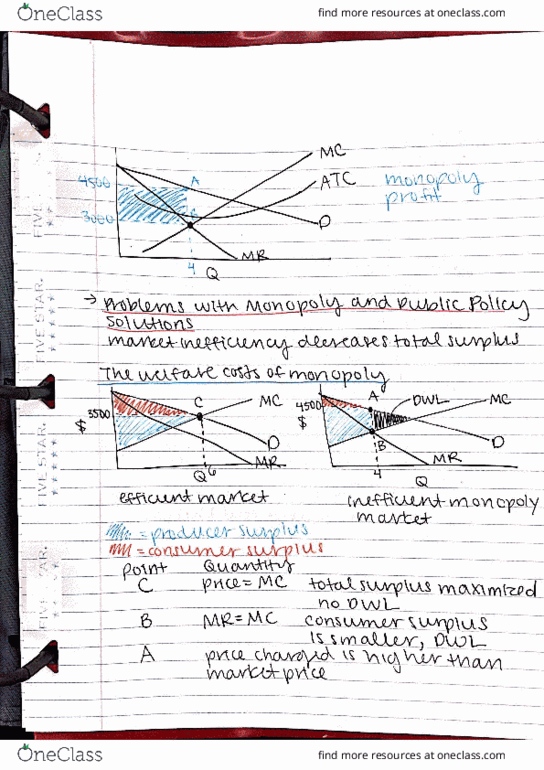 OneClass
find more resources at oneclass.com
MC
ATC
4500
A
monopoly
profit
3000
B
D
4
MR
Q
→ Problems with Monopoly and Public Policy
Solutions
market inefficiency decreases total surplus
The welfare costs of monopoly
3500
$
C
MC
D
MR
Q 6
efficient market
4500
$
A
DWL
MC
D
B
MR
4
Q
inefficient monopoly
market
= producer surplus
= consumer surplus
Point Quantity
C price = MC total surplus maximized
no DWL
B MR = MC consumer surplus
is smaller, DWL
A price charged is higher than
market price
FIVE STAR.
FIVE STAR.
FIVE STAR.
FIVE STAR.
OneClass
find more resources at oneclass.com